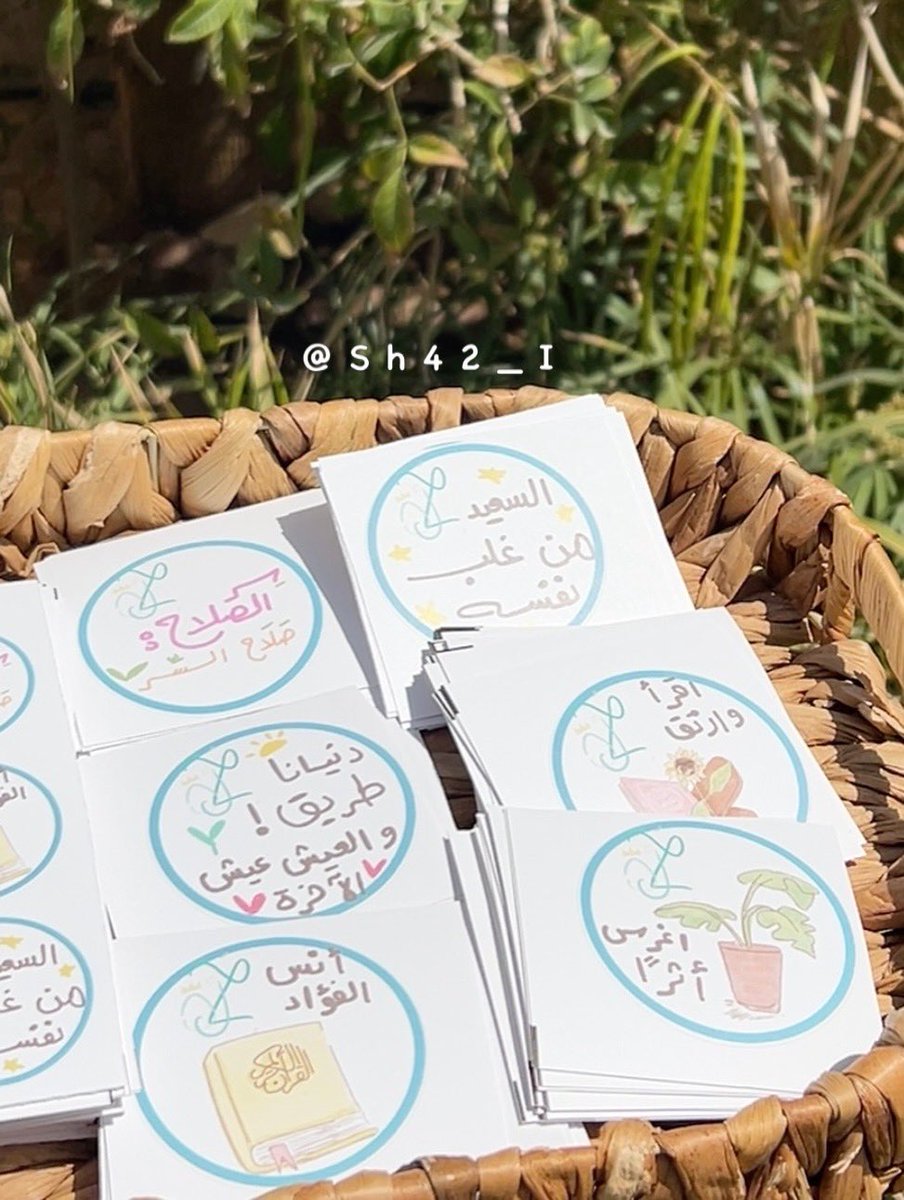 @Sh42_I
السعيد
من غلب
نفسه
سر
الصلاح:
صلاح السر
اقرأ
وارتق
دنيانا
طريق!
والعيش عيش
الآخرة
اغرس
أثرًا
أنس
الفؤاد
القرآن
السعيد
من غلب
نفسه